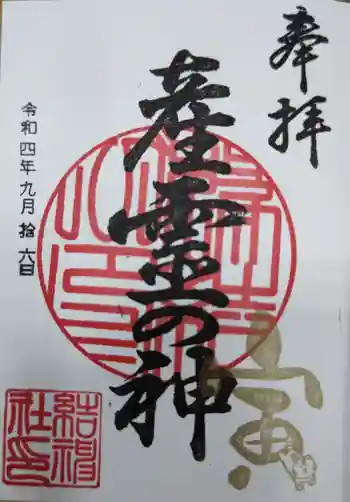 奉拝
産霊の神
寅
令和四年九月拾六日
結神社印